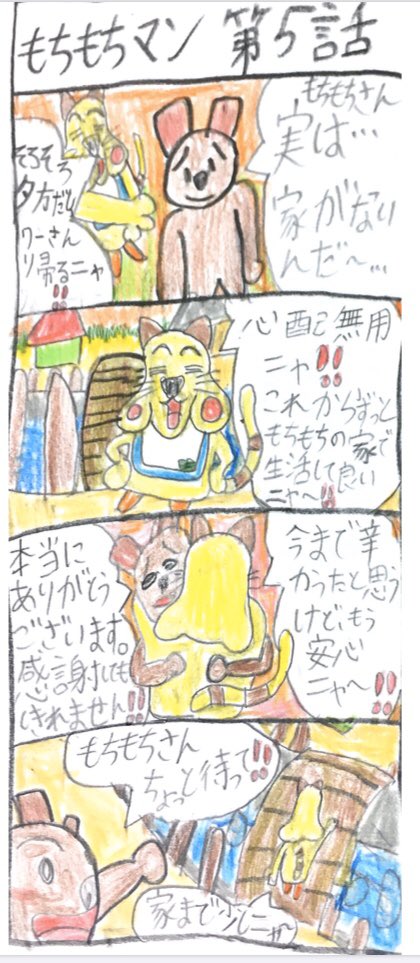 もちもちマン 第5話
もちもちさん
実は…
家がない
んだ〜…
そろそろ
夕方だし
ワーさん
り帰るニャ
!!
心配ご無用
ニャ!!
これからずっと
もちもちの家で
生活して良い
ニャ〜!!
今まで辛
かったと思う
けど、もう
安心
ニャ〜!!
本当に
ありがとう
ございます。
感謝しても
しきれません!!
もちもちさん
ちょっと待って!!
家まで少しニャ〜